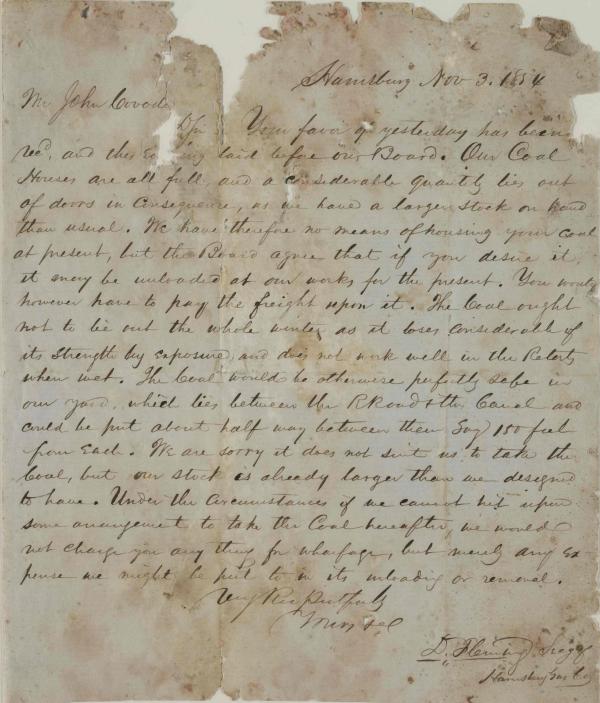 Harrisburg Nov 3. 1854
Mr John Covode
D Sir Your favor of yesterday has been
rec'd, and this Evening laid before our Board. Our Coal
Houses are all full, and a considerable quantity lies out
of doors in Consequence, as we have a larger stock on hand
than usual. We have therefore no means of housing your coal
at present, but the Board agree that if you desire it,
it may be unloaded at our works for the present. You would
however have to pay the freight upon it. The Coal ought
not to lie out the whole winter as it loses considerable of
its strength by exposure, and does not work well in the Retorts
when wet. The Coal would be otherwise perfectly safe in
our yard, which lies between the RRoad & the Canal and
could be put about half way between them Say 150 feet
from Each. We are sorry it does not suit us to take the
Coal, but our stock is already larger than we designed
to have. Under the Circumstances if we cannot hit upon
some arrangement to take the Coal hereafter, we would
not charge you any thing for wharfage, but merely any Ex-
pense we might be put to in its unloading or removal.
Very Respectfully
Yours &c
D. Fleming Secy of
Harrisburg Gas Co.